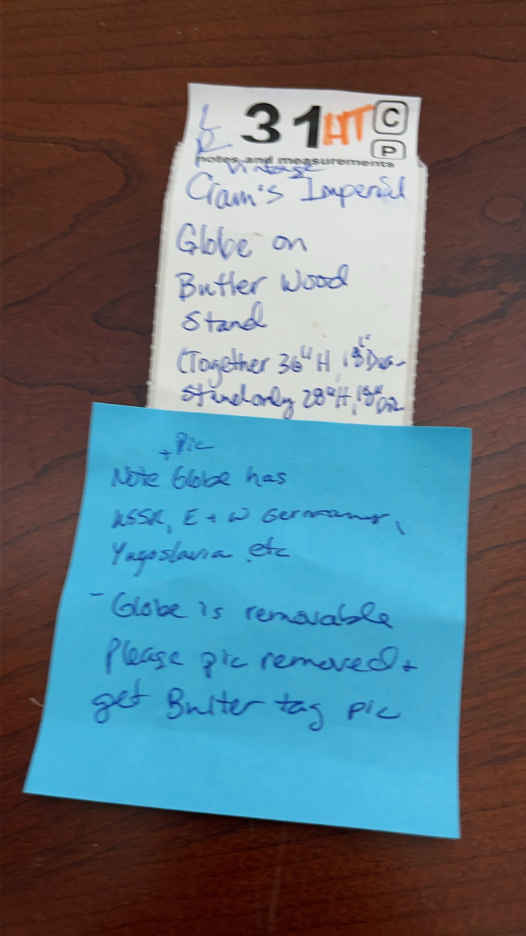 31 HT C
P
notes and measurements
Vintage
Cram's Imperial
Globe on
Butler Wood
Stand
(Together 36" H, 18" Dia-
Stand only 28" H, 18" Dia
+ Pic
Note Globe has
USSR, E + W Germany,
Yugoslavia etc
- Globe is removable
Please pic removed +
get Butler tag pic